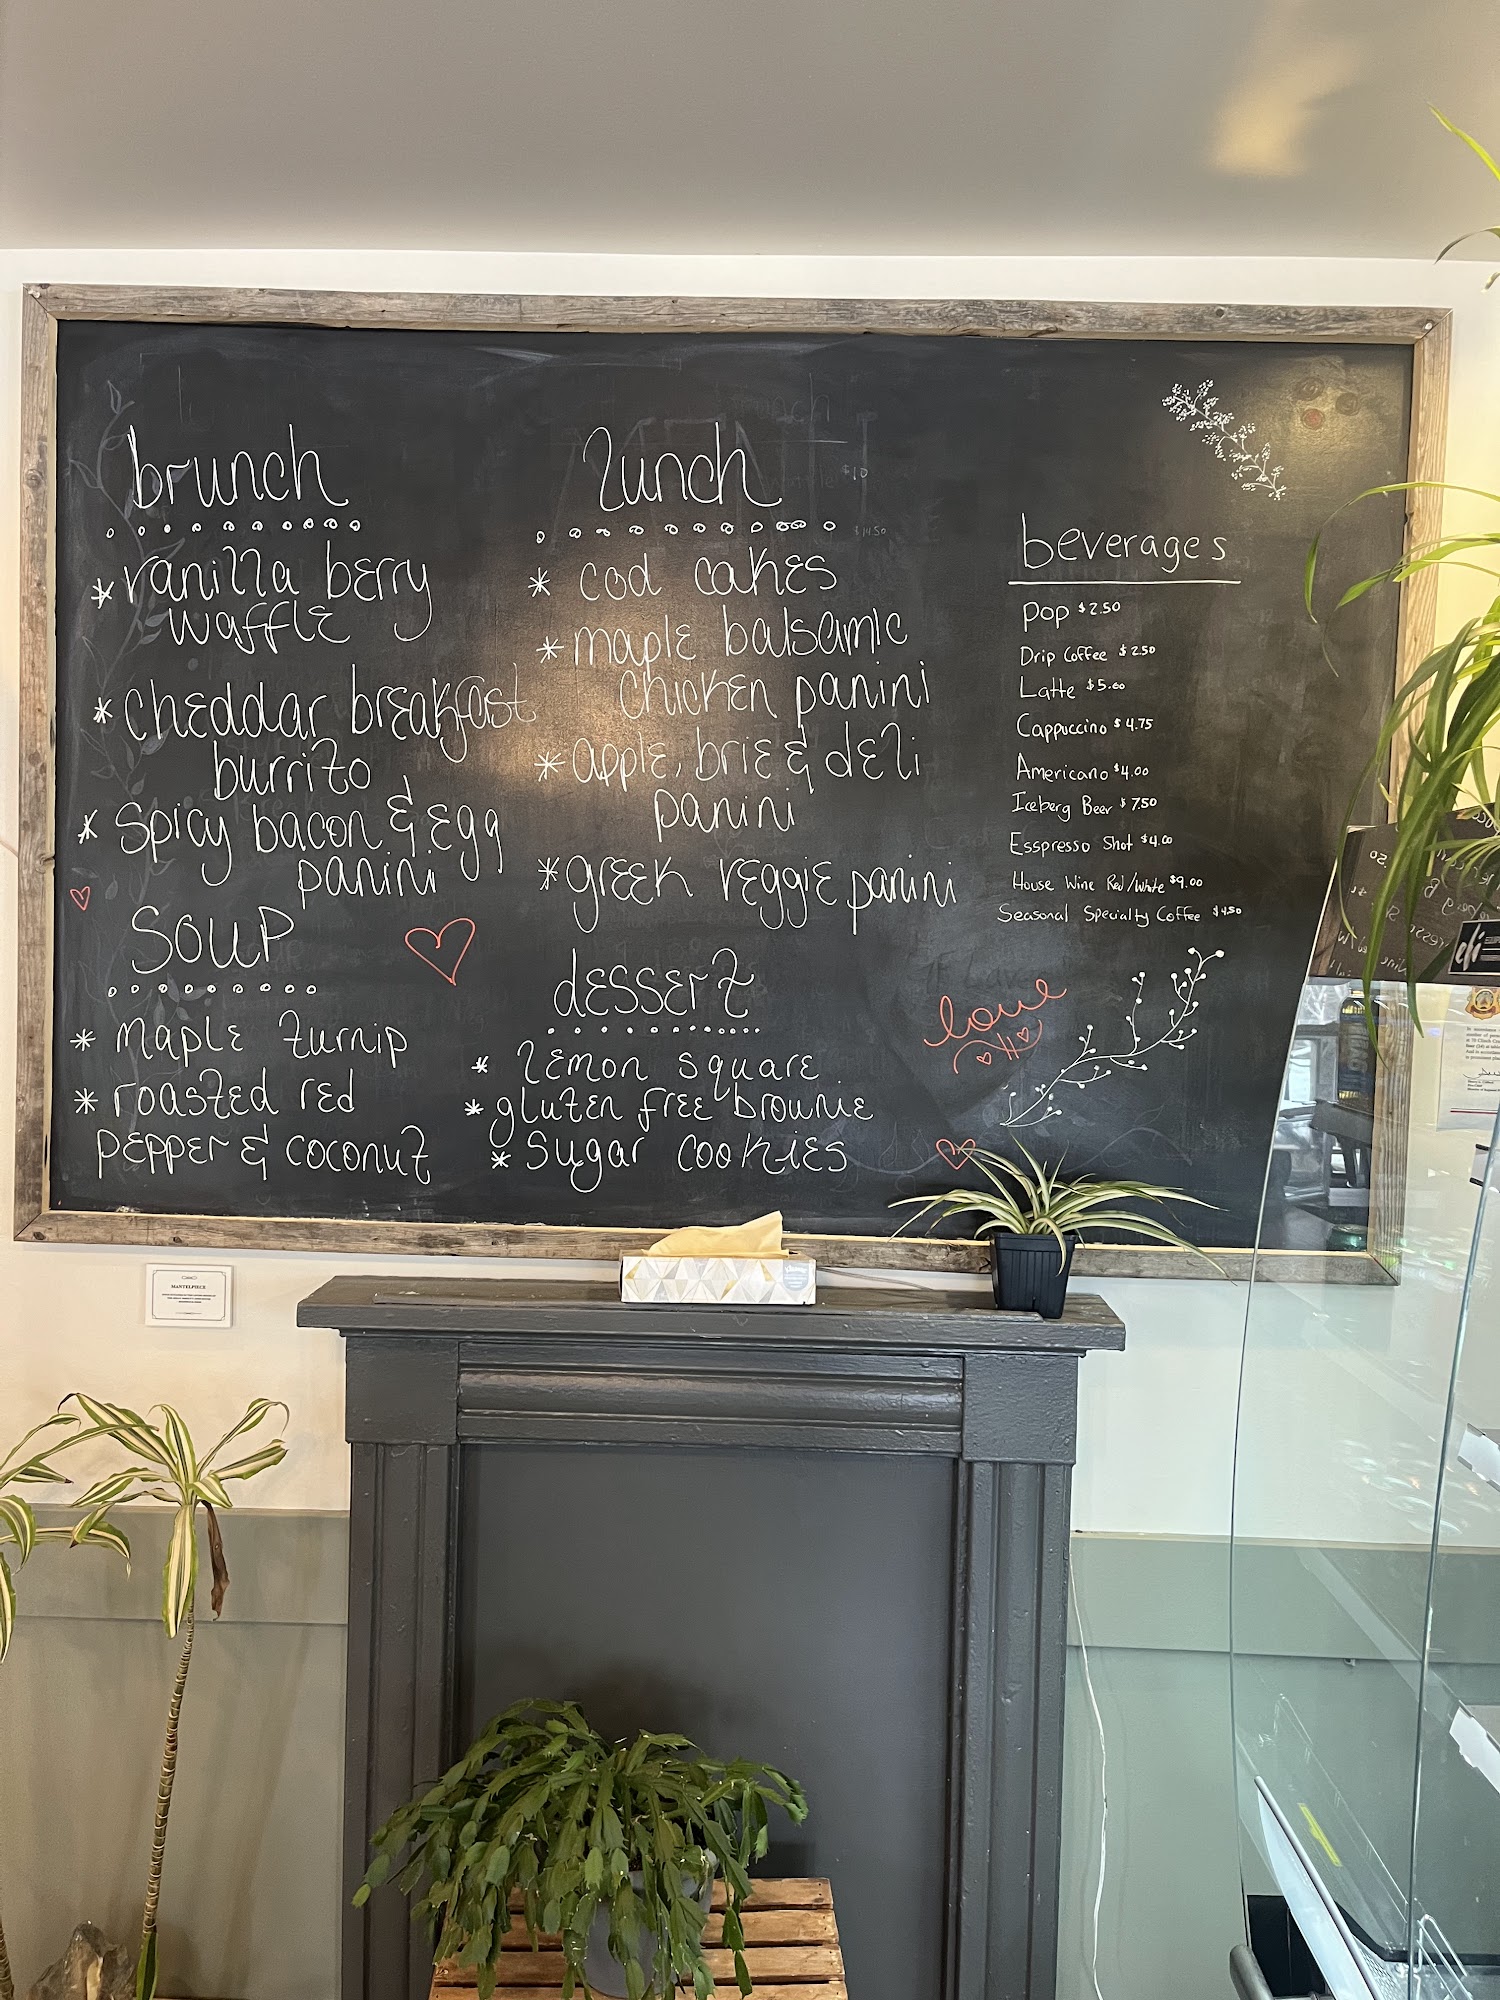 brunch
* vanilla berry
waffle
* cheddar breakfast
burrito
* spicy bacon & egg
panini
soup
* maple turnip
* roasted red
pepper & coconut
lunch
* cod cakes
* maple balsamic
chicken panini
* apple, brie & deli
panini
* greek veggie panini
dessert
* lemon square
* gluten free brownie
* sugar cookies
beverages
Pop $2.50
Drip Coffee $2.50
Latte $5.00
Cappuccino $4.75
Americano $4.00
Iceberg Beer $7.50
Esspresso Shot $4.00
House Wine Red/White $9.00
Seasonal Specialty Coffee $4.50
love
MANTELPIECE
Kleenex